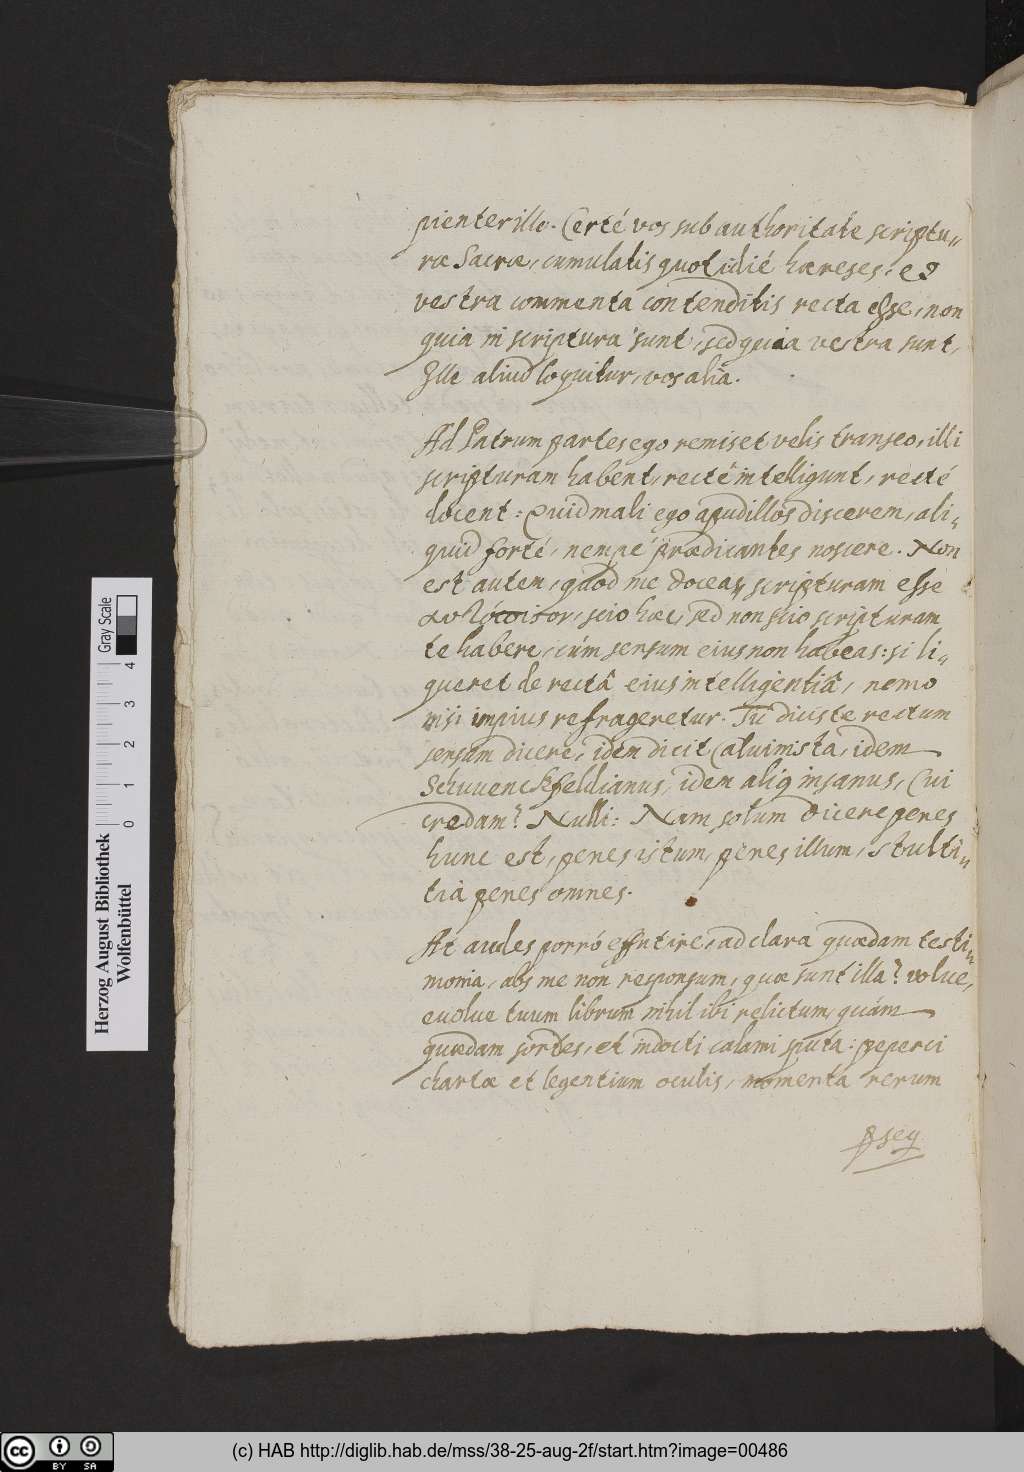 pienter illo. Certé vos sub authoritate scriptu„
ræ Sacræ, cumulatis quotidié hæreses: et
vestra commenta contenditis recta esse, non
quia in scriptura sunt, sed quia vestra sunt,
Ille aliud loquitur, vos alia.
Ad Patrum partes ego remiset velis transeo, illi
scripturam habent, recté intelligunt, recté
docent: Quid mali ego apud illos discerem, ali„
quid forté, nempé prædicantes noscere. Non
est autem, quod me doceas, scripturam esse
scio hæc, sed non scio scripturam
te habere, cúm sensum eius non habeas: si li„
queret de rectâ eius intelligentiâ, nemo
nisi impius refrageretur. Tu dicis te rectum
sensum dicere, idem dicit Caluinista, idem
Schuuenckfeldianus, idem aliq insanus, Cui
credam? Nulli: Nam solum dicere penes
hunc est, penes istum, penes illum, stulti„
tia penes omnes.
At audes porró effutire, ad clara quædam testi„
monia, abs me non responsum, quæ sunt illa? volue,
euolue tuum librum nihil ibi relictum, quám
quædam sordes, et indocti calami sputa: peperci
chartæ et legentium oculis, momenta rerum
Herzog August Bibliothek
Wolfenbüttel
0 1 2 3 4
Gray Scale
cc BY SA
(c) HAB http://diglib.hab.de/mss/38-25-aug-2f/start.htm?image=00486